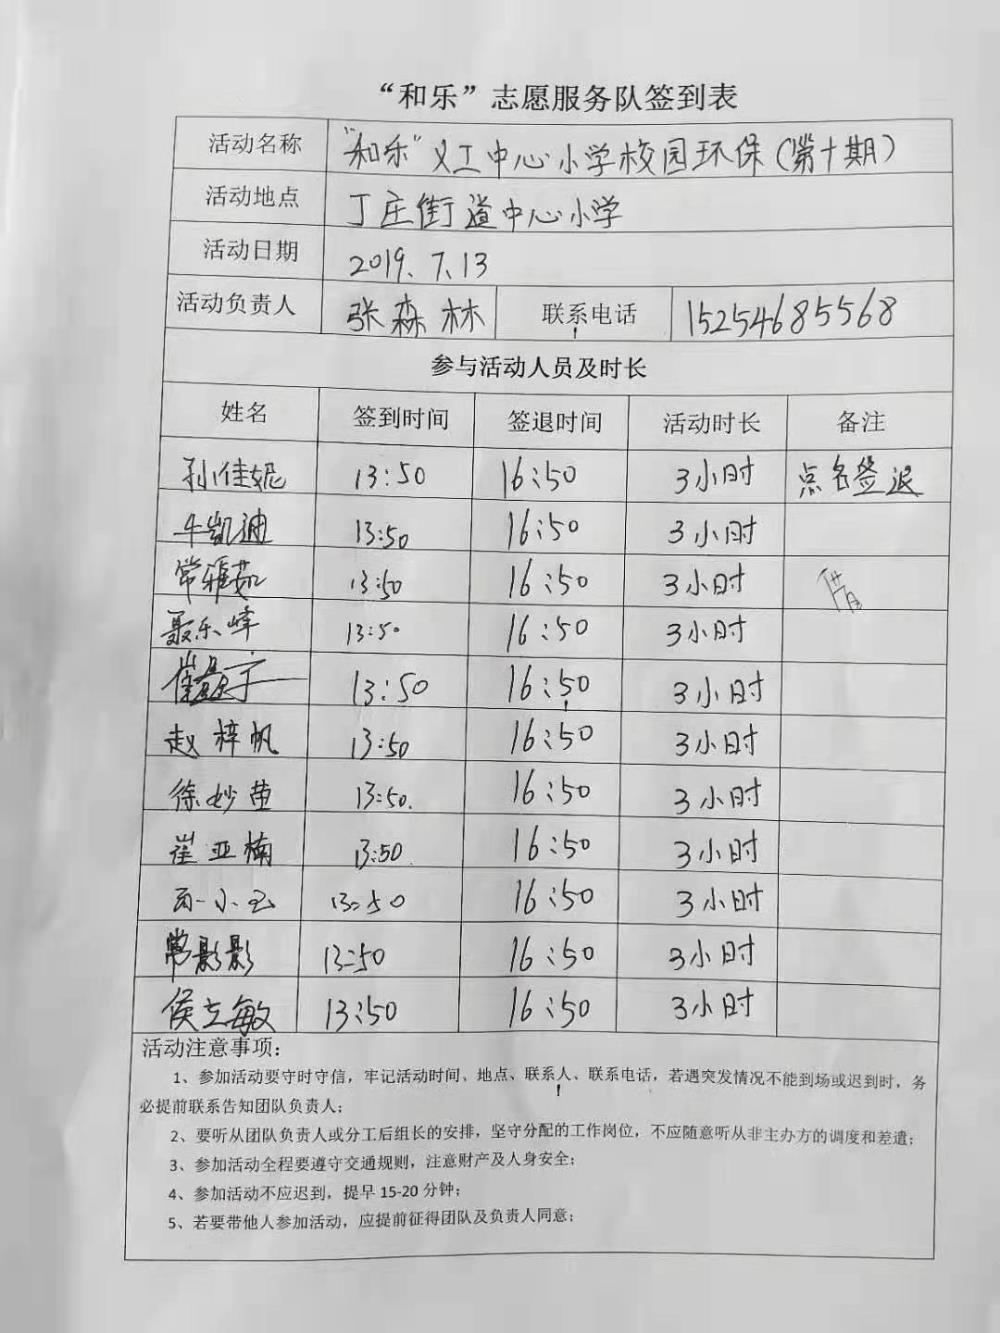 “和乐”志愿服务队签到表
活动名称 “和乐”义工中心小学校园环保（第十期）
活动地点 丁庄街道中心小学
活动日期 2019.7.13
活动负责人 张森林 联系电话 15254685568
参与活动人员及时长
姓名 签到时间 签退时间 活动时长 备注
孙佳妮 13:50 16:50 3小时 点名签退
牛凯迪 13:50 16:50 3小时
常雅茹 13:50 16:50 3小时
聂乐峰 13:50 16:50 3小时
13:50 16:50 3小时
赵梓帆 13:50 16:50 3小时
徐妙苗 13:50. 16:50 3小时
崔亚楠 13:50 16:50 3小时
小 13:50 16:50 3小时
常影影 13:50 16:50 3小时
侯立敏 13:50 16:50 3小时
活动注意事项：
1、参加活动要守时守信，牢记活动时间、地点、联系人、联系电话，若遇突发情况不能到场或迟到时，务
必提前联系告知团队负责人；
2、要听从团队负责人或分工后组长的安排，坚守分配的工作岗位，不应随意听从非主办方的调度和差遣；
3、参加活动全程要遵守交通规则，注意财产及人身安全；
4、参加活动不应迟到，提早 15-20 分钟；
5、若要带他人参加活动，应提前征得团队及负责人同意；